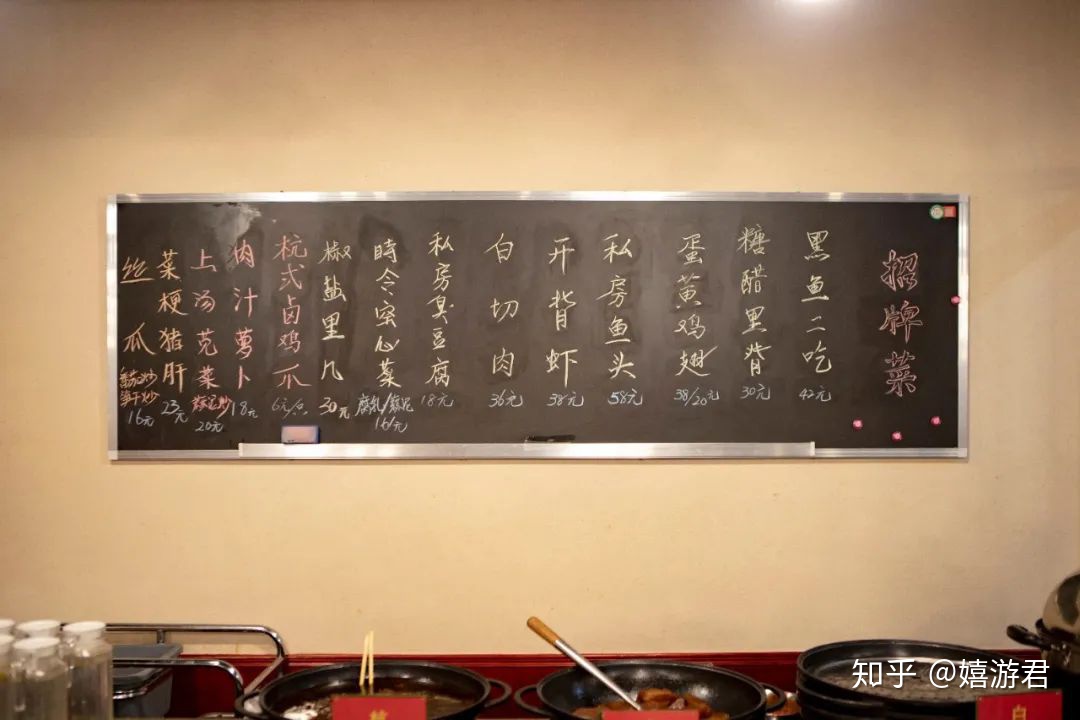 招牌菜
黑鱼二吃
42元
糖醋里背
30元
蛋黄鸡翅
38/20元
私房鱼头
58元
开背虾
38元
白切肉
36元
私房臭豆腐
18元
時令蜜心菜
腐乳/蒜泥
16/元
椒盐里几
30元
杭式卤鸡爪
6元/只
肉汁萝卜
18元
上汤苋菜
蒜泥炒
20元
菜梗猪肝
23元
丝瓜
番茄炒
笋干炒
16元
知乎 @嬉游君